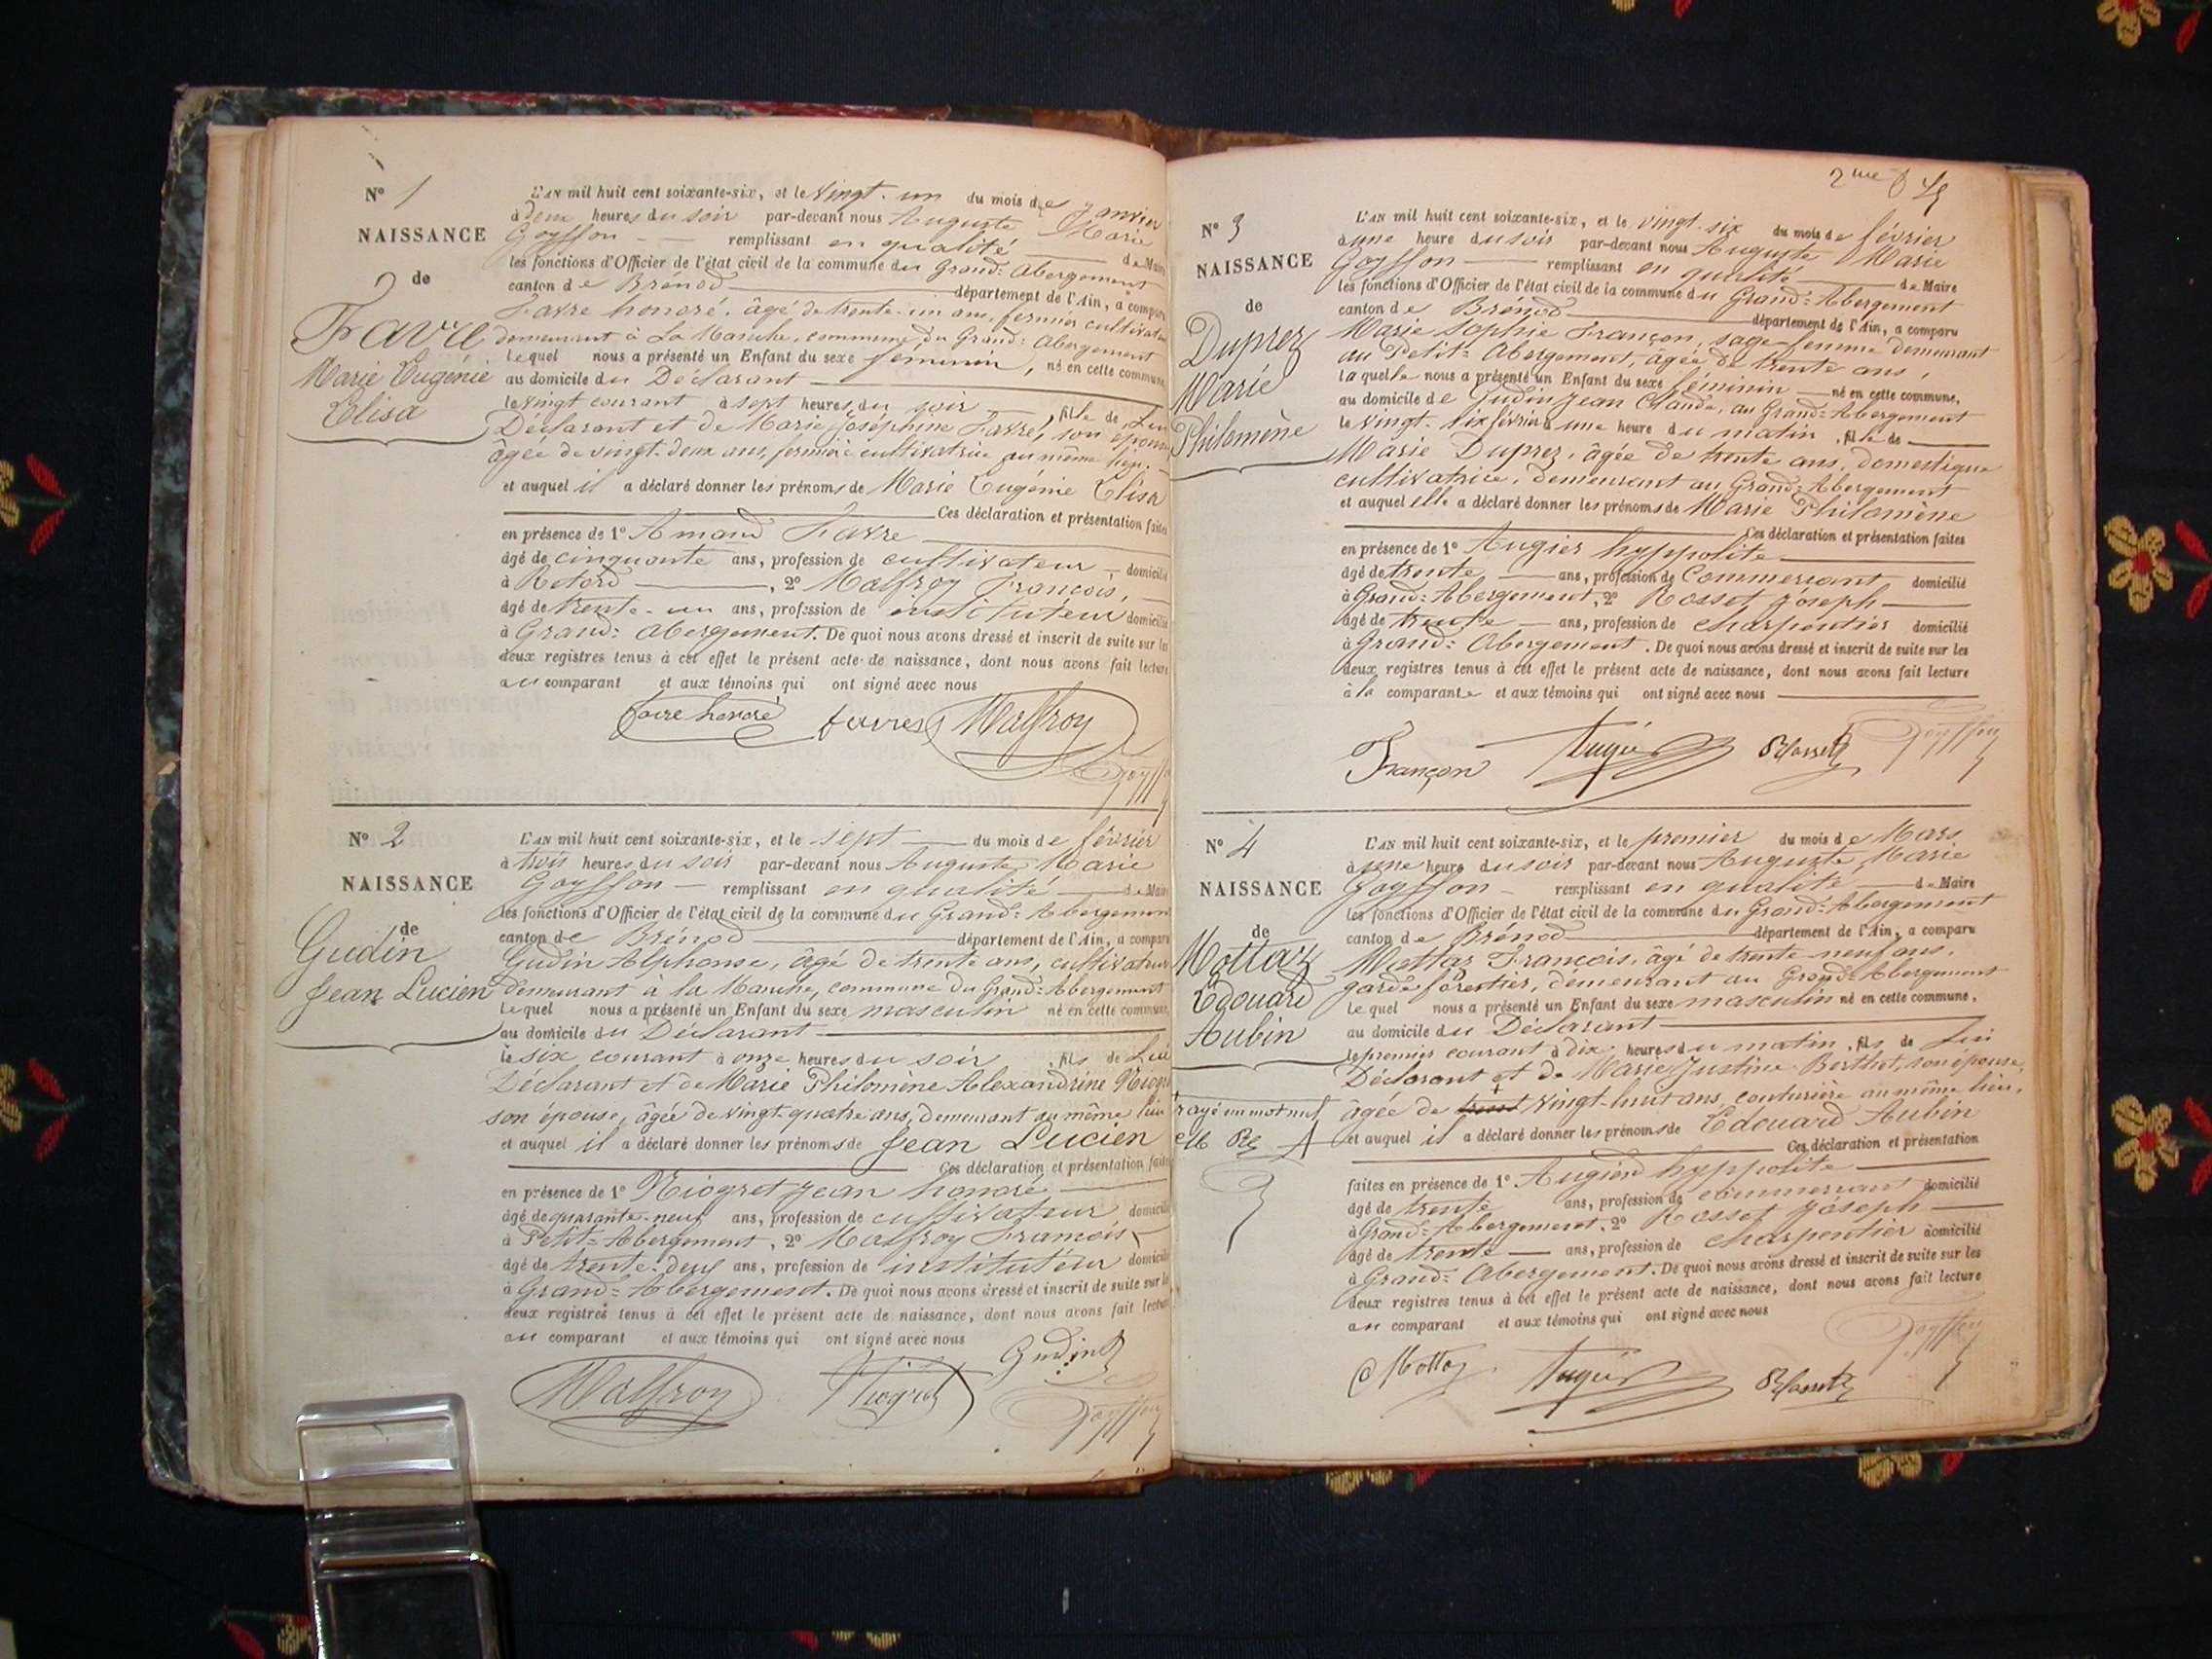 N° 1
NAISSANCE
de
Favre
Marie Eugénie
Elisa
L'AN mil huit cent soixante-six, et le vingt-un du mois de Janvier
à deux heures du soir par-devant nous Auguste Marie
Goyffon remplissant en qualité de Maire
les fonctions d'Officier de l'état civil de la commune du Grand-Abergement
canton de Brénod département de l'Ain, a comparu
Favre honoré, âgé de trente-un ans, fermier cultivateur
demeurant à La Manche, commune du Grand-Abergement
Lequel nous a présenté un Enfant du sexe féminin, né en cette commune,
au domicile du Déclarant
le vingt courant à sept heures du soir, fille de Lui
Déclarant et de Marie Joséphine Favre, son épouse
âgée de vingt-deux ans, fermière cultivatrice au même lieu.
et auquel il a déclaré donner les prénoms de Marie Eugénie Elisa
Ces déclaration et présentation faites
en présence de 1° Amand Favre
âgé de cinquante ans, profession de cultivateur domicilié
à Retord, 2° Malfroy François,
âgé de trente-un ans, profession de instituteur domicilié
à Grand-Abergement. De quoi nous avons dressé et inscrit de suite sur les
deux registres tenus à cet effet le présent acte de naissance, dont nous avons fait lecture
au comparant et aux témoins qui ont signé avec nous
favre honoré favre Malfroy
Goyffon
N° 2
NAISSANCE
de
Gudin
Jean Lucien
L'AN mil huit cent soixante-six, et le sept du mois de février
à trois heures du soir par-devant nous Auguste Marie
Goyffon remplissant en qualité de Maire
les fonctions d'Officier de l'état civil de la commune du Grand-Abergement
canton de Brénod département de l'Ain, a comparu
Gudin Alphonse, âgé de trente ans, cultivateur
demeurant à la Manche, commune du Grand-Abergement
Lequel nous a présenté un Enfant du sexe masculin né en cette commune,
au domicile du Déclarant
le six courant à onze heures du soir, fils de Lui
Déclarant et de Marie Philomène Alexandrine Niogret
son épouse, âgée de vingt-quatre ans, demeurant au même lieu
et auquel il a déclaré donner les prénoms de Jean Lucien
Ces déclaration et présentation faites
en présence de 1° Niogret Jean honoré
âgé de quarante-neuf ans, profession de cultivateur domicilié
à Petit-Abergement, 2° Malfroy François
âgé de trente-deux ans, profession de instituteur domicilié
à Grand-Abergement. De quoi nous avons dressé et inscrit de suite sur les
deux registres tenus à cet effet le présent acte de naissance, dont nous avons fait lecture
au comparant et aux témoins qui ont signé avec nous
Malfroy Niogret Gudin
Goyffon
2me
N° 3
NAISSANCE
de
Duprez
Marie
Philomène
L'AN mil huit cent soixante-six, et le vingt-six du mois de février
à une heure du soir par-devant nous Auguste Marie
Goyffon remplissant en qualité de Maire
les fonctions d'Officier de l'état civil de la commune du Grand-Abergement
canton de Brénod département de l'Ain, a comparu
Marie Sophie Françon, sage-femme demeurant
au Petit-Abergement, âgée de trente ans,
laquelle nous a présenté un Enfant du sexe féminin né en cette commune,
au domicile de Gudin Jean Claude, au Grand-Abergement
le vingt-six février à une heure du matin, fille de
Marie Duprez, âgée de trente ans, domestique
cultivatrice, demeurant au Grand-Abergement
et auquel elle a déclaré donner les prénoms de Marie Philomène
Ces déclaration et présentation faites
en présence de 1° Augier hyppolite
âgé de trente ans, profession de Commerçant domicilié
à Grand-Abergement, 2° Rosset Joseph
âgé de trente ans, profession de charpentier domicilié
à Grand-Abergement. De quoi nous avons dressé et inscrit de suite sur les
deux registres tenus à cet effet le présent acte de naissance, dont nous avons fait lecture
à la comparante et aux témoins qui ont signé avec nous
Françon Augier Rosset Goyffon
N° 4
NAISSANCE
de
Mottaz
Edouard
Aubin
rayé un mot nul
L'AN mil huit cent soixante-six, et le premier du mois de Mars
à une heure du soir par-devant nous Auguste Marie
Goyffon remplissant en qualité de Maire
les fonctions d'Officier de l'état civil de la commune du Grand-Abergement
canton de Brénod département de l'Ain, a comparu
Mottaz François, âgé de trente-neuf ans,
garde forestier, demeurant au Grand-Abergement
Lequel nous a présenté un Enfant du sexe masculin né en cette commune,
au domicile du Déclarant
le premier courant à dix heures du matin, fils de Lui
Déclarant et de Marie Justine Berthet, son épouse,
âgée de trent vingt-huit ans, couturière au même lieu,
et auquel il a déclaré donner les prénoms de Edouard Aubin
Ces déclaration et présentation
faites en présence de 1° Augier hyppolite
âgé de trente ans, profession de commerçant domicilié
à Grand-Abergement, 2° Rosset Joseph
âgé de trente ans, profession de charpentier domicilié
à Grand-Abergement. De quoi nous avons dressé et inscrit de suite sur les
deux registres tenus à cet effet le présent acte de naissance, dont nous avons fait lecture
au comparant et aux témoins qui ont signé avec nous
Mottaz Augier Rosset Goyffon